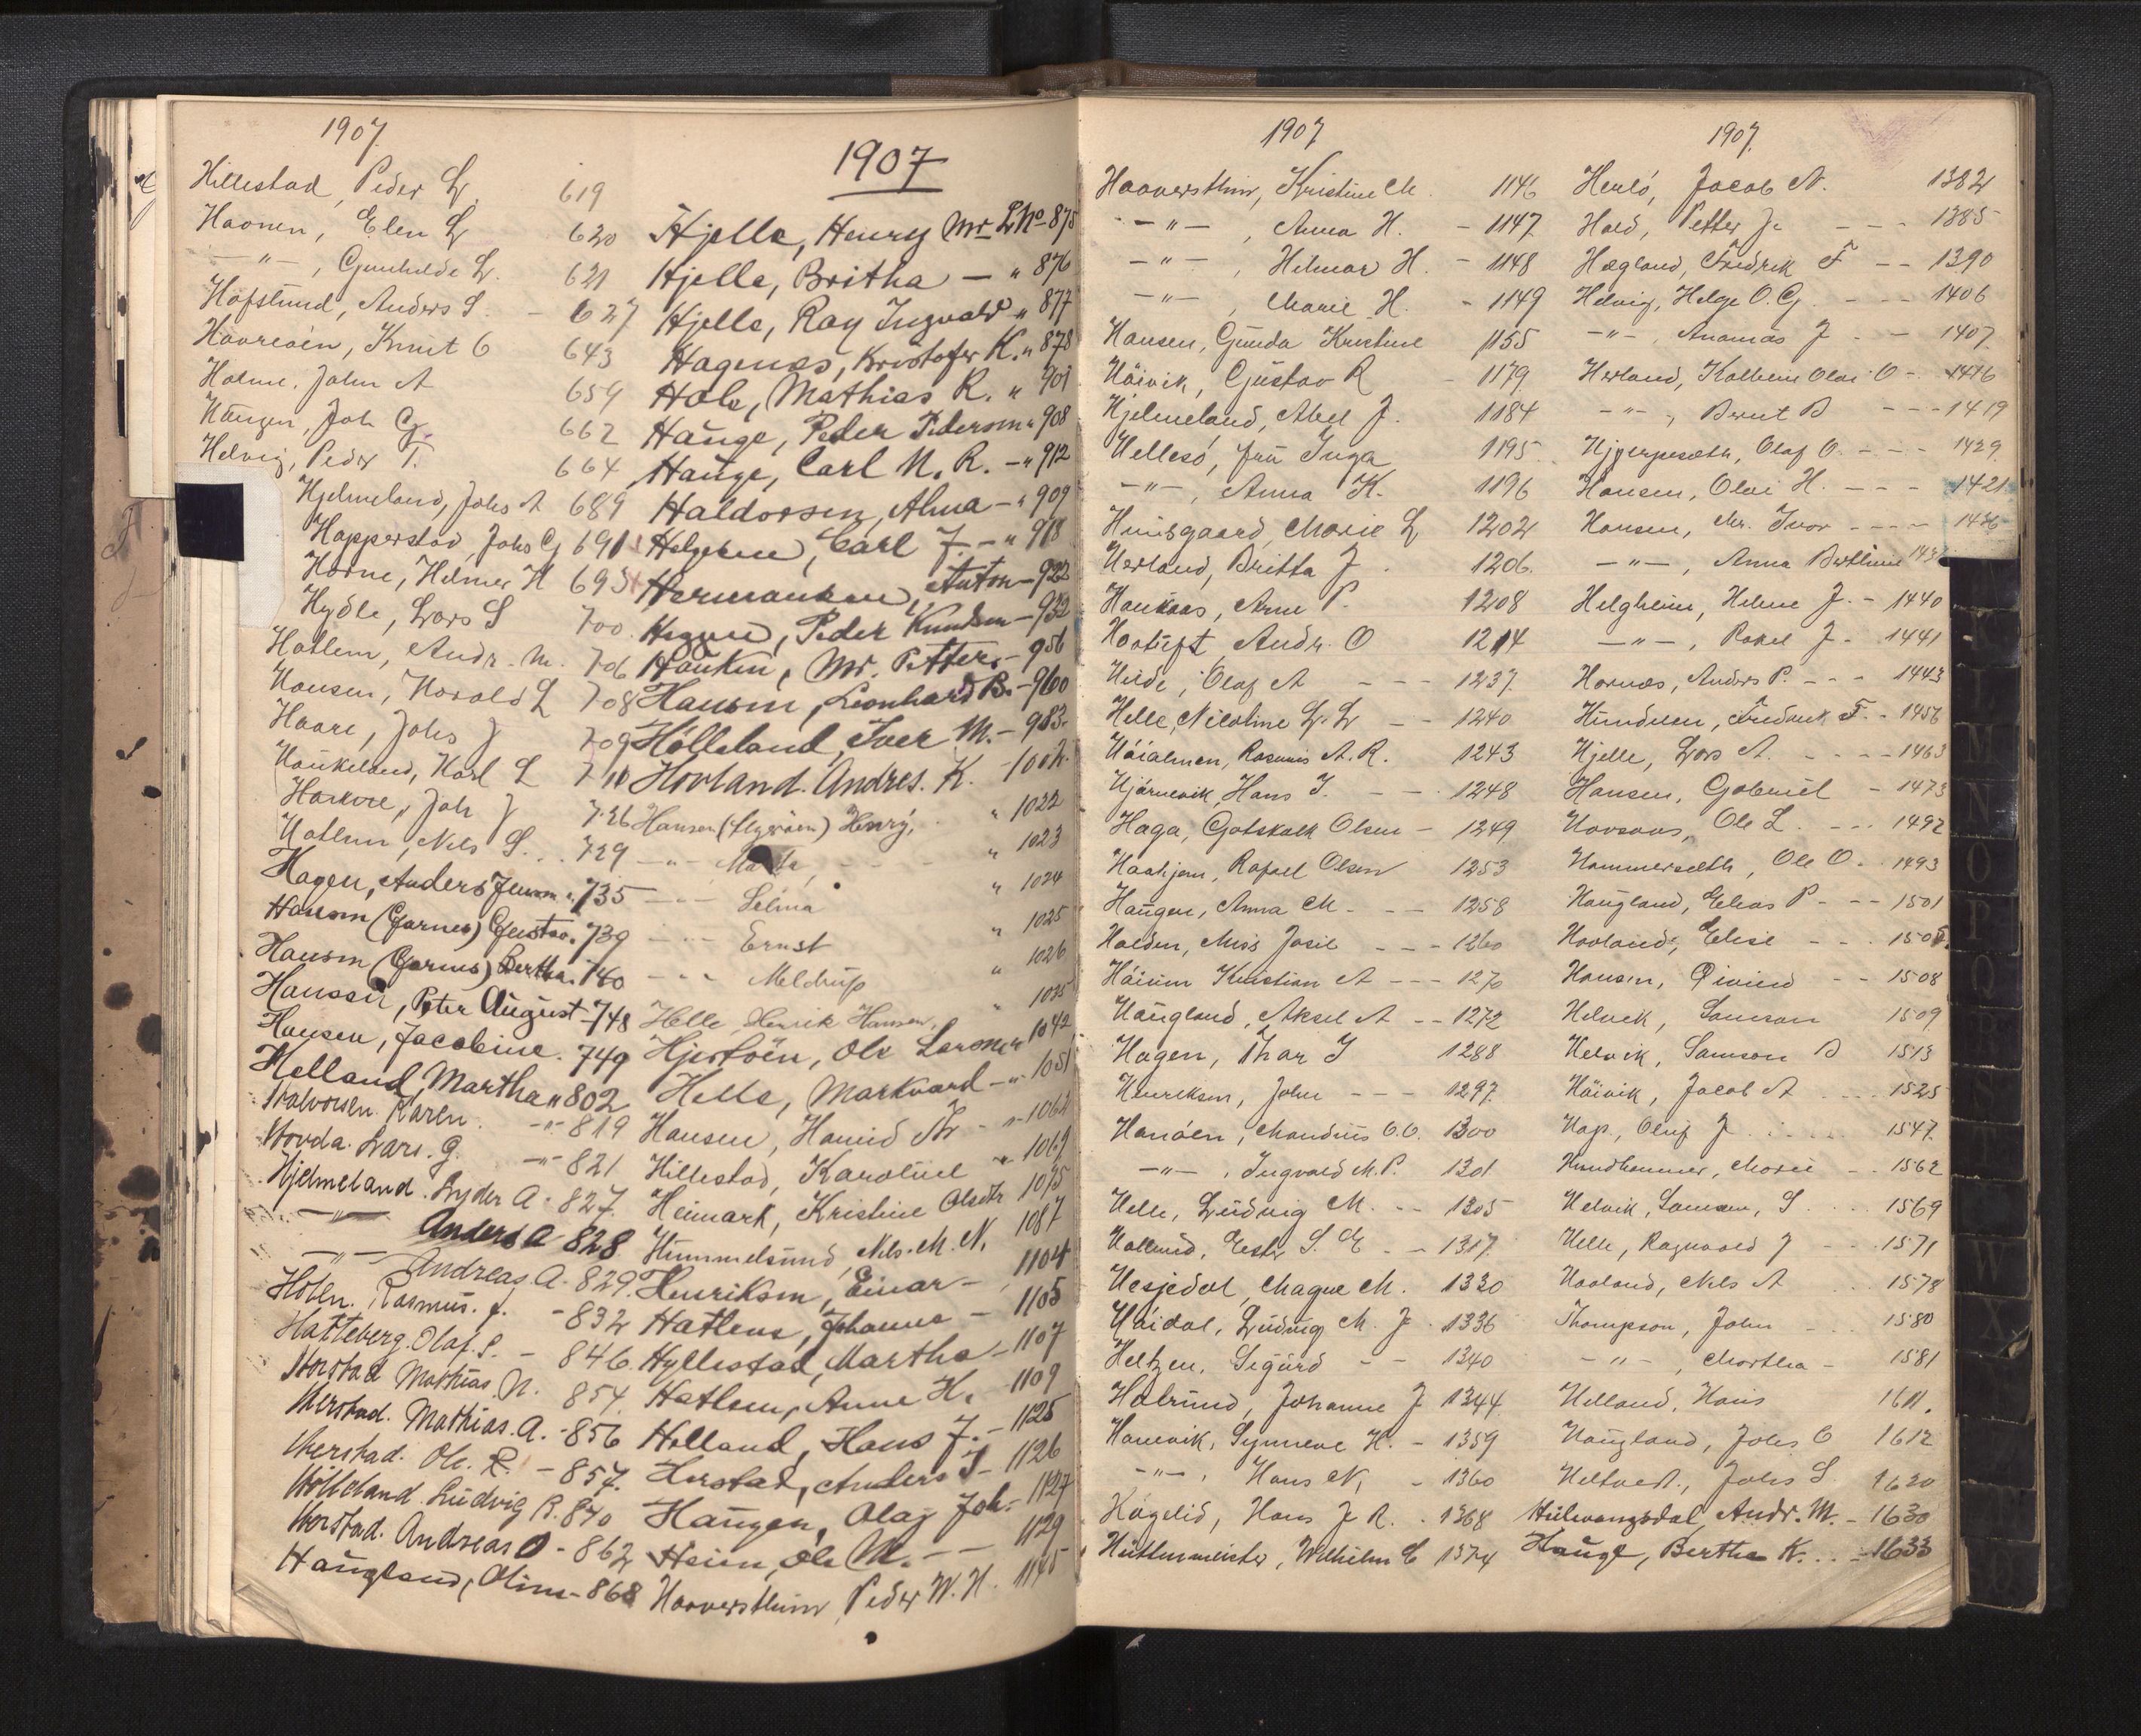 1907
Hillestad, Peder L. 619
Haonen, Elen L 620
-"-, Gunhilde L. 621
Hofslund, Anders S. - 627
Havreöen, Knut O 643
Holme, John A 659
Haugen, Joh. G. 662
Helvig, Peder T. 664
Hjelmeland, Johs A 689
Hopperstad, Johs G 691
Horne, Helmer H 695
Hydle, Lars S 700
Hatlem, Andr. M. 706
Hansen, Harald L 708
Haare, Johs J 709
Haukeland, Karl L 710
Joh J 726
Hatlem, Nils S. 729
Hagen, Anders Jenson " 735
Hansen (Garnes) Gustav. 739
Hansen (Garnes) Bertha. 740
Hanssen, Peter August - 748
Hansen, Jacobine. 749
Helland, Martha " 802
Halvorsen Karen. -"- 819
Hovda. Lars. G. -"- 821
Hjelmeland. Lyder A. 827.
-"- Anders A 828
-"- Andreas. A. 829.
Holen. Rasmus. J. - 832
Hatteberg. Olaf. S. - 846.
Horstad Mathias N. 854.
Herstad. Mathias. A. - 856
Herstad. Ole. R. - 857.
Hölleland. Ludvig R. 840
Horstad. Andreas O - 862
Haugland, Oline - 868
1907
Hjelle, Henry Mr LNo - 875
Hjelle, Britha - " 876
Hjelle, Ray Ingvald " 877
Hagenes, Kristofer K. " 878
Hole, Mathias R. " 901
Hauge, Peder Pederson " 908
Hauge, Carl N. R. - " 912
Haldorsen, Alma - " 909
Helgesen, Carl J. - " 918
Hermansen, Anton - 922
Peder Knudsen - 932
Haukin, Mr. Petter. - 956
Hansen, Leonhard B. - 960
Hölleland, Iver M. - 983.
Hovland. Andres. K. - 1002.
Hansen Henry, " 1022
-"- " 1023
-"- Selma " 1024
-"- Ernst " 1025
-"- Meldrup " 1026
Helle, Henrik Hansen, " 1035
Hjertöen, Ole Larsner 1042
Helle, Markvard -"- 1051
Hansen, Hamid Th -"- 1062
Hillestad, Karoline " 1069
Heimark, Kristine Olsdtr 1075
Hummelsund, Nils. M. N. 1087
Henriksen, Einar - 1104
Hatlem, Johanne - 1105
Hyllestad, Martha - 1107
Hatlem, Anne H. 1109
Holland, Hans J. - 1125
Herstad, Anders S - 1126
Haugen, Olaf Joh. - 1127
Heien, Ole M. - 1129
Haaversthun Peder W. H. 1145
1907
Haaversthun, Kristine M. 1146
-"-, Anna H. - 1147
-"-, Hilmar H. - 1148
-"-, Marie H. - 1149
Hansen, Gunda Kristine 1155
Häivik, Gustav R - 1179
Hjelmeland, Abel J. 1184
Hellesö, fru Inga 1195
-"-, Anna K. 1196
Huusgaard, Marie L 1202
Herland, Britta J. 1206.
Haukaas, Arne P. 1208
Andr. O 1214
Hilde, Olaf A - - - 1237.
Helle, Nicoline L. L - - 1240
Rasmus A. R. 1243
Hjörnevik, Hans I. - - 1248
Haga, Gotskalk Olsen - 1249
Haahjem, Rafael Olsen 1253
Haugen, Anna M - - - 1258
Halden, Miss Josie - - - 1260
Kristian A - - - 1270
Haugland, Aksel A - - 1272
Hagen, Thar I 1288
Henriksen, John - - - 1297.
Hanöen, Mandius O. O. 1300
-"-, Ingvald M. P. 1301
Helle, Ludvig M. - - 1305
S. E - - 1317.
Hesjedal, Magne M. 1330
Häidal, Ludvig M. J. 1336
Heltzen, Sigurd - - 1340
Holmind, Johanne J 1344
Hanevik, Synneve H. - 1359
-"-, Hans N, - 1360
Hägelid, Hans J R. . 1368
Hüttenmeister, Wilhelm C 1374
1907.
Herlö, Jacob N. 1382
Hald, Petter J. - - - 1385
Hægland, Fredrik F - - 1390
Helvig, Helge O. G. - - - 1406
-"-, Ananias J. - - 1407.
Herland, Kathrine Olai O - 1416
-"-, Bernt B - - - 1419
Olaf O. - - - 1429
Hansen, Olai H. - - - 1421.
Hansen, Mr. Ivar - - - - 1436
-"-, Anna Berthine 143
Helgheim, Helene J. - 1440
-"-, Rakel J. - 1441
Hornes, Anders P. - - - 1443
Fredrik F. - 1456
Hjelle, Lars A. - - - - 1463
Hansen, Gabriel - 1473
Ole L. - - - 1492
Hammersæth, Ole O. . 1493
Haugland, Elias P - - - 1501
Hovland, Elise - - - 1505.
Hansen, Eivind - - 1508
Helvik, Samson 1509
Helvik, Samson B 1513
Häivik, Jacob A .... 1525
Hop, Oluf J ..... 1547.
Hundhammer, Marie - - 1562
Helvik, Samson, S .... 1569
Helle, Ragnvald J - - - 1571
Hovland, Nils A ... 1578
Thompson, John - .. 1580
-"-, Martha - 1581
Helland, Hans 1611.
Haugland, Johs O 1612
Heltvedt, Johs S. 1620
Hülvangsdal, Andr. M. - 1630
Hauge, Bertha K. .. - 1633
M
N
O
P
Q
W
X